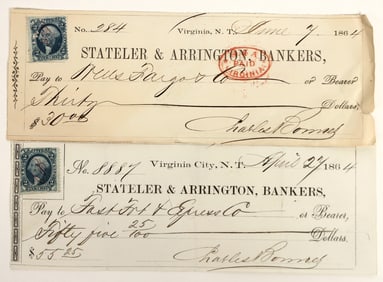 No. 284 Virginia, N. T. June 7 1864
STATELER & ARRINGTON BANKERS,
Pay to Wells Fargo & Co or Bearer
Thirty Dollars,
$30.00
PAID
VIRGINIA
Charles Bonney
No. 8887 Virginia City, N. T. April 27 1864
STATELER & ARRINGTON, BANKERS,
Pay to Fast Frt & Express Co or Bearer,
Fifty five 25/100 Dollars.
$55 25
Charles Bonney